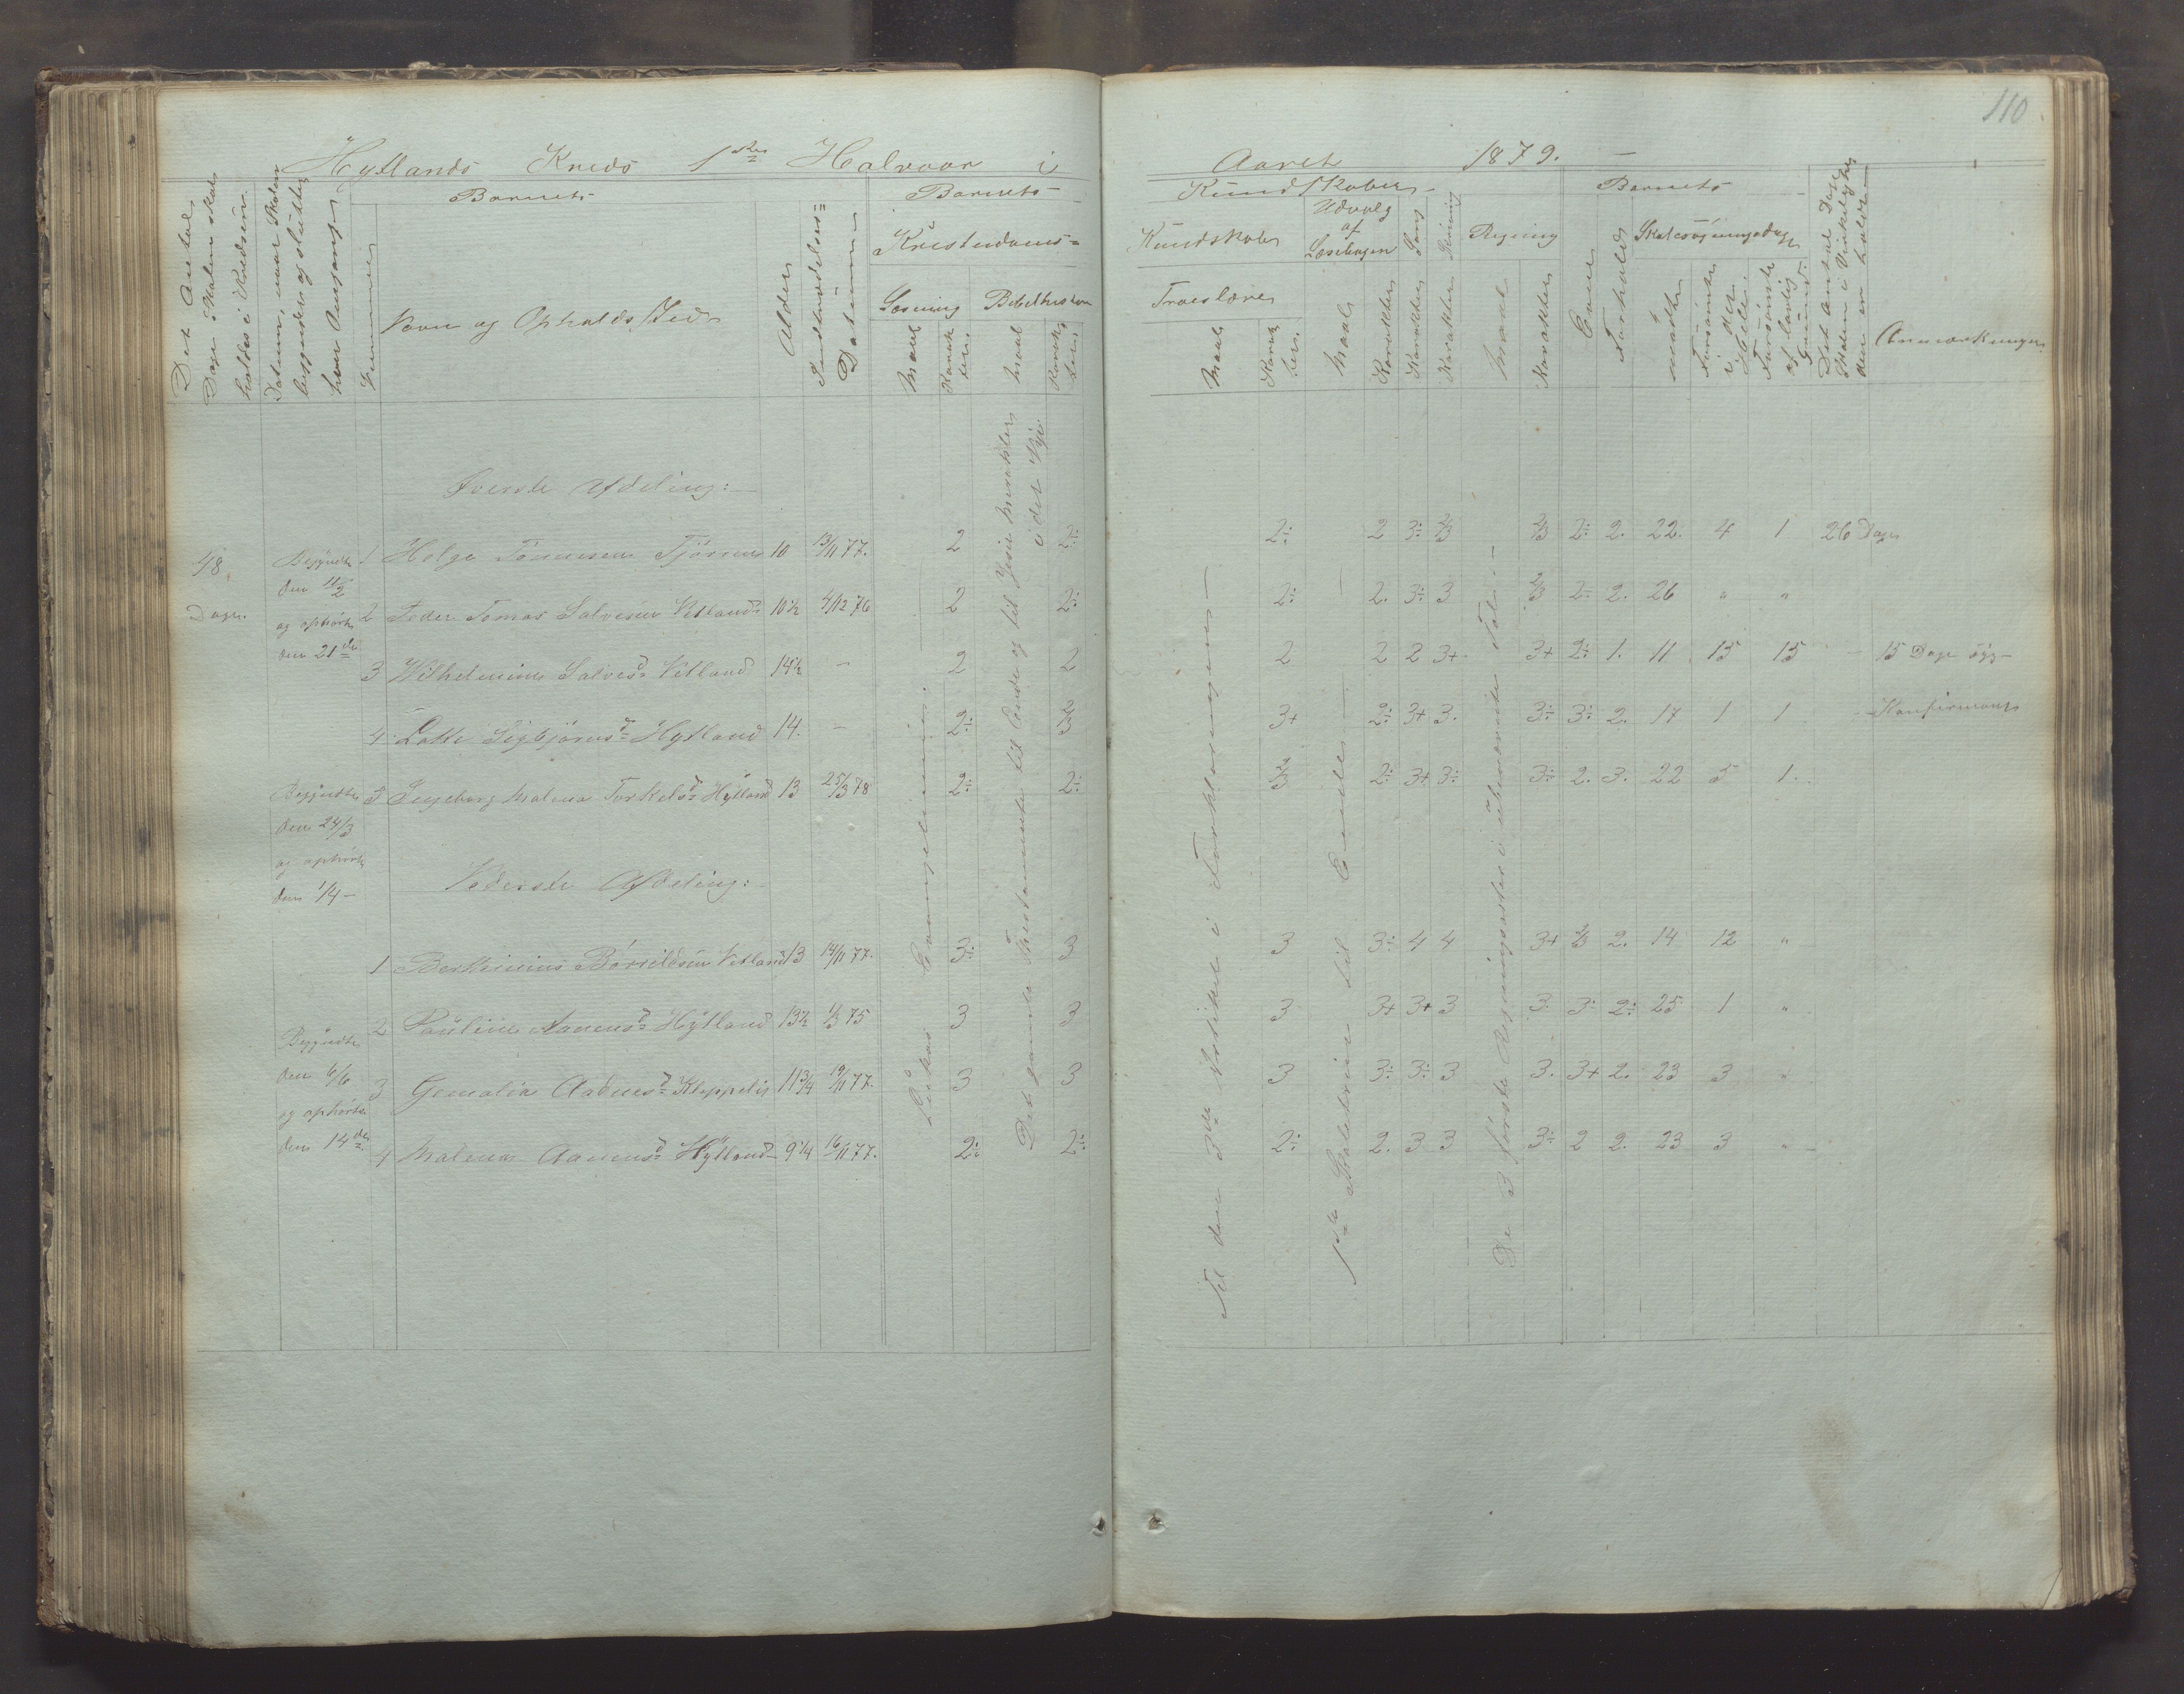 110
Hytlands Kreds 1ste Halvaar i Aaret 1879.
Det Antal Dage Skolen skal holdes i Kredsen
Datum, naar Skolen begyndes og sluttes hver Omgang
Nummer
Barnets
Navn og Opholds Sted
Alder
Indtrædelses= Datum
Barnets
Kristendoms=
Læsning
Bibelhistorie
Maal
Karakter
Maal
Karakter
Kundskaber
Kundskab
Troeslære
Maal
Karakter
Udvalg af Læsebogen
Maal
Karakter
Sang
Karakter
Skrivning
Karakter
Regning
Maal
Karakter
Barnets
Evne
Forhold
Skolesøgningsdage
mødte
forsømte i det Hele
Forsømte af lovlig Grund
Det Antal Dage Skolen i Virkelighed
Anmærkninger
Øverste Afdeling:
48 Dage.
Begyndte den 11/2 og ophørte den 21de
1 Helge Tønnesen Tjørren 10 13/11 77. 2 2÷ 2÷ 2 3÷ 2/3 2/3 2÷ 2. 22. 4 1 26 Dage
2 Peder Tomas Salvesen Vetland 10½ 4/12 76 2 2÷ 2÷ 2. 3÷ 3 2/3 2÷ 2. 26 " "
3 Wilhelmine Salvesd Vetland 14½ - 2 2 2 2 2 3+ 3+ 2÷ 1. 11 15 15 - 15 Dage syg-
4 Lotte Sigbjørnsd Hytland 14. - 2÷ 2/3 3+ 2÷ 3+ 3. 3÷ 3÷ 2. 17 1 1 - Konfirmant
Begyndte den 24/3 og ophørte den 1/4 -
5 Ingeborg Malena Torkelsd Hytland 13 25/3 78 2÷ 2÷ 2/3 2÷ 3+ 3÷ 3÷ 2. 3. 22 5 1.
Nederste Afdeling:
1 Berthinius Børrildsen Vetland 13 14/11 77. 3÷ 3 3 3÷ 4 4 3+ 2/3 2. 14 12 "
Begyndte den 6/6 og ophørte den 14de
2 Pauline Aanensd Hytland 13½ 1/3 75 3 3 3 3+ 3+ 3 3 3÷ 2÷ 25 1 "
3 Gemalia Aadnesd Kleppelis 11¾ 19/11 77. 3 3 3 3÷ 3÷ 3 3. 3+ 2. 23 3 "
4 Malena Aanensd Hytland 9¼ 16/11 77. 2÷ 2÷ 2÷ 2. 3 3 3÷ 2 2. 23 3 "
Lukas Evangelium.
Det gamle Testamente til Ende og til Jesu Mirakler i det Nye
Til den 3de Artikel i Forklaringen -
1ste Skoletrin til Ende
De 3 første Regningsarter i Ubenævnte Tal -